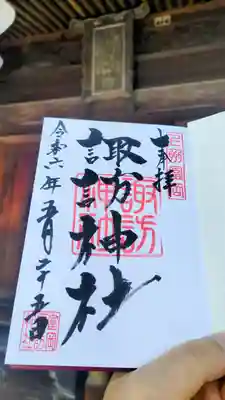 奉拝
諏訪神社
諏訪
神社
令和六年五月二十五日